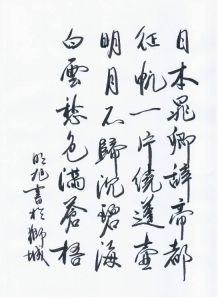 日本晁卿辭帝都
征帆一片繞蓬壺
明月不歸沉碧海
白雲愁色滿蒼梧
明旭書於獅城